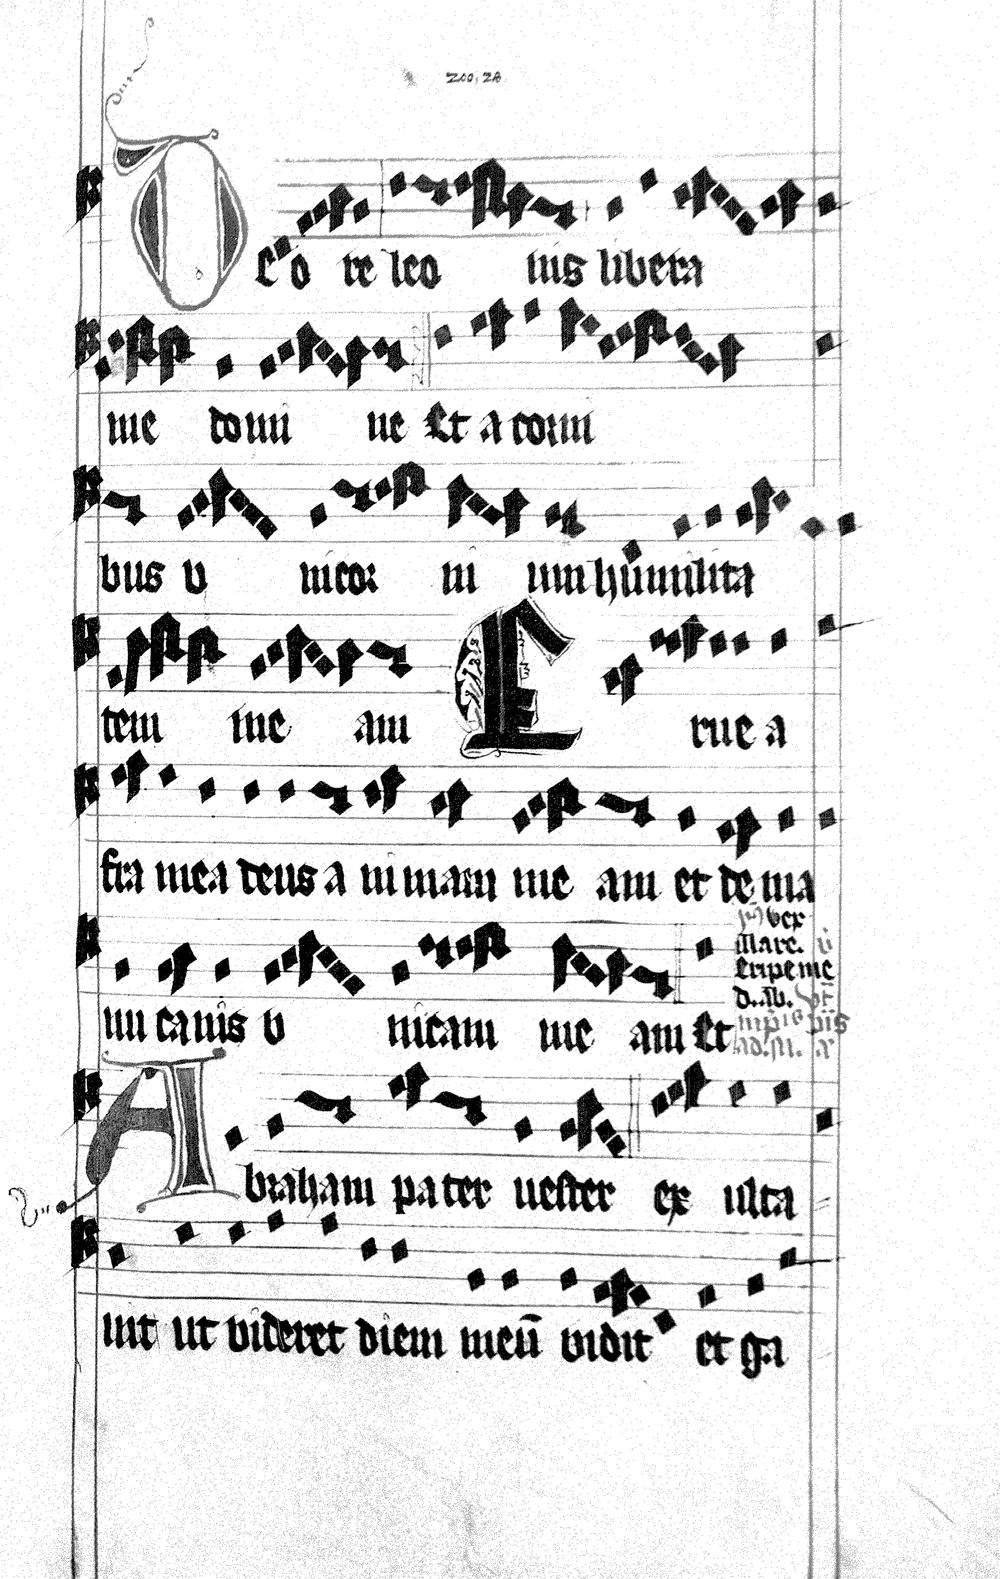 D e o re leo nis libera
me domi ne Et a corni
bus v nicor ni um humilita
tem me am E rue a
fra mea deus a nimam me am et de ma
nu canis v nicam me am Et
Marc.
Eripe me
A braham pater vester ex ulta
uit ut videret diem meū vidit et ga